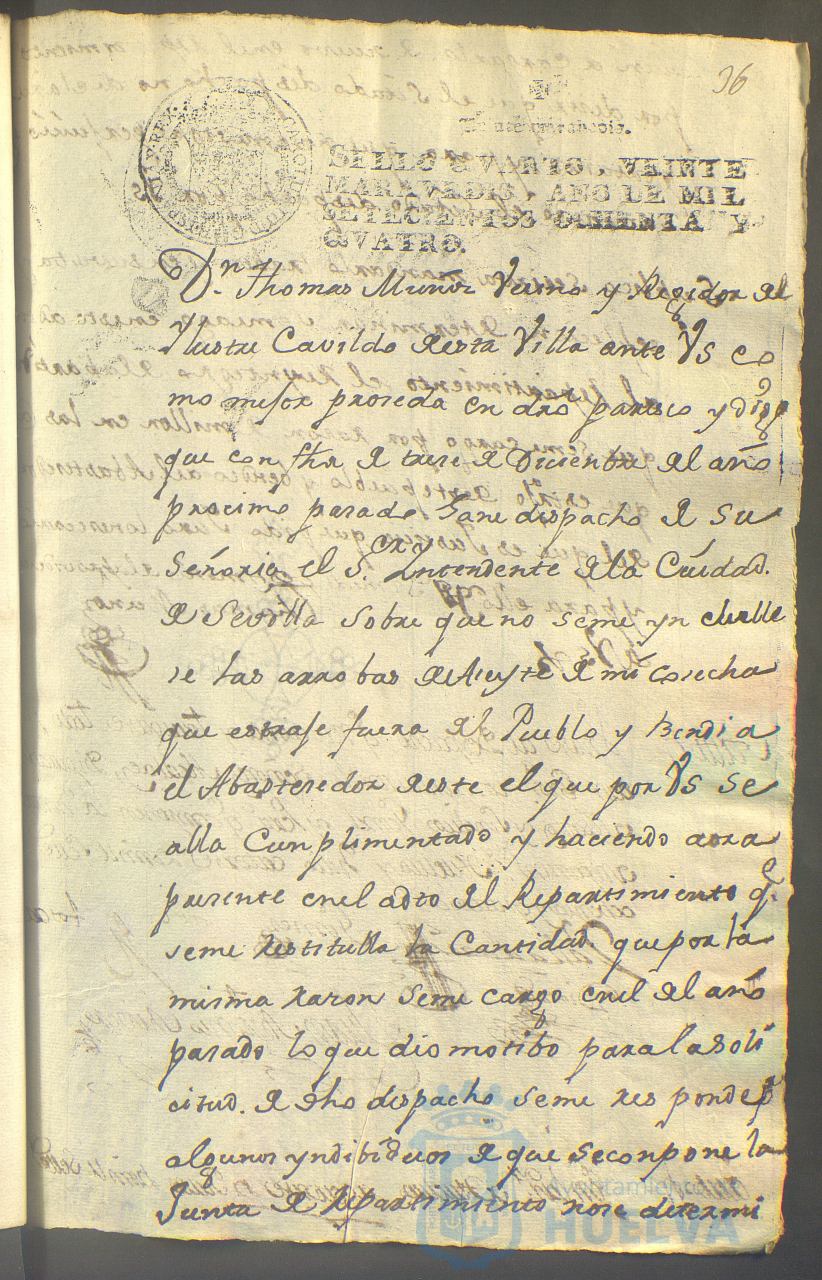 36
Veinte maravedis.
SELLO QVARTO, VEINTE
MARAVEDIS, AÑO DE MIL
SETECIENTOS OCHENTA Y
QVATRO.
Dn. Thomas Muñiz Vecino y Regidor del
Ylustre Cavildo de esta Villa ante VS co
mo mejor proseda en dro paresco y digo
que con fha de trese de Diciembre del año
procimo pasado Gane dispacho de su
Señoria el Sor. Yntendente de la Ciudad.
de Sevilla sobre que no seme yn clulle
se las arrobas de Aseyte de mi cosecha
que estraje fuera del Pueblo y Bendi a
el Abastesedor de este el que por VS se
alla Cunplimentado y haciendo aora
presente en el acto del Repartimiento q.
seme Restitulla la Cantidad. que por la
misma raron seme cargo en el del año
pasado lo que dio motibo para la soli
citud. de dho dispacho seme res ponde pr
algunos yndibiduos de que se conpone la
Junta de Repartimiento no se determi
Ayuntamiento de
HUELVA